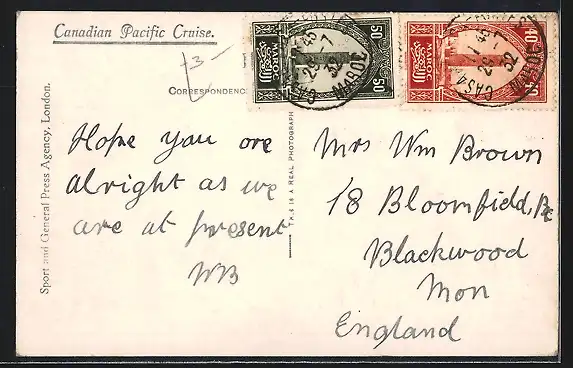 Canadian Pacific Cruise.
3-
CORRESPONDENC
Sport and General Press Agency, London.
THIS IS A REAL PHOTOGRAPH
50 50
MAROC
MAROC
40
MAROC
MAROC
Hope you are
alright as we
are at present
WB
Mrs Wm Brown
18 Bloomfield,
Blackwood
Mon
England